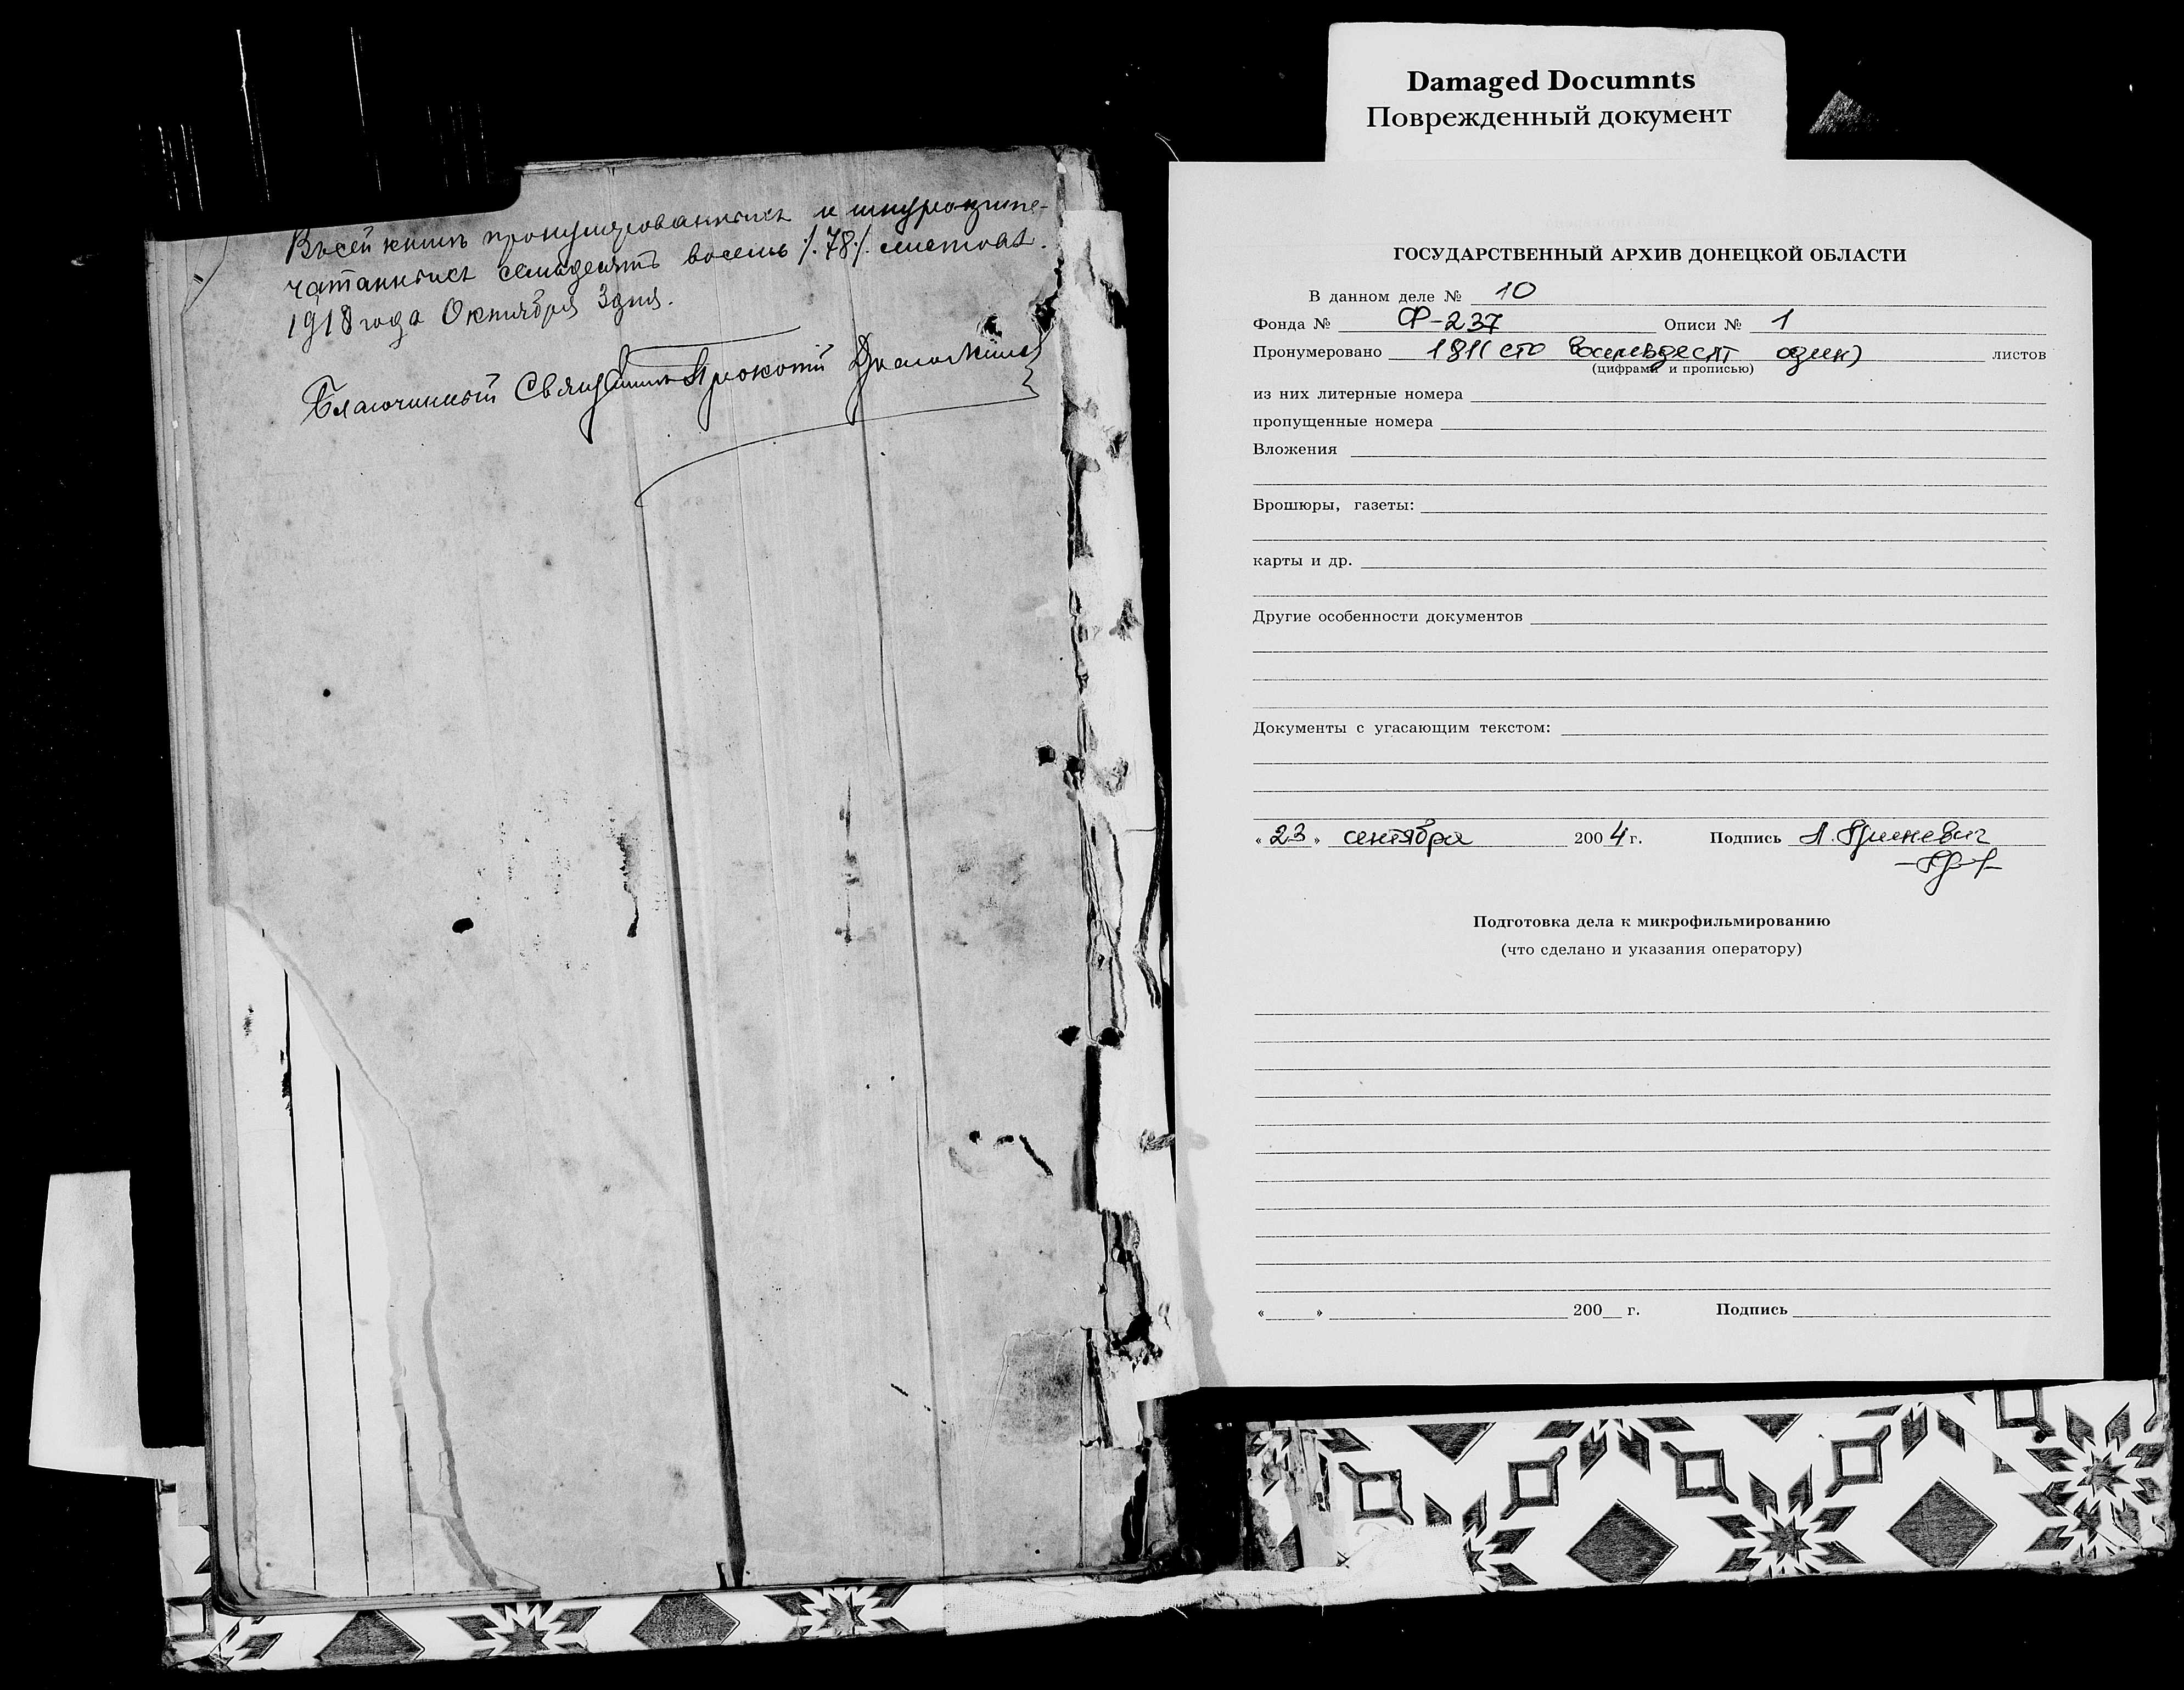 Въ сей книгѣ пронумерованныхъ и шнуропипе-
чатанныхъ семьдесятъ восемь /.78/. листовъ.
1918 года Октября 3 дня.
Благочинный Священникъ Прокопій
Damaged Documnts
Поврежденный документ
ГОСУДАРСТВЕННЫЙ АРХИВ ДОНЕЦКОЙ ОБЛАСТИ
В данном деле № 10
Фонда № Ф-237 Описи № 1
Пронумеровано 181 (сто восемьдесят один) листов
(цифрами и прописью)
из них литерные номера
пропущенные номера
Вложения
Брошюры, газеты:
карты и др.
Другие особенности документов
Документы с угасающим текстом:
« 23 » сентября 2004 г. Подпись Л.
Подготовка дела к микрофильмированию
(что сделано и указания оператору)
« » 200 г. Подпись